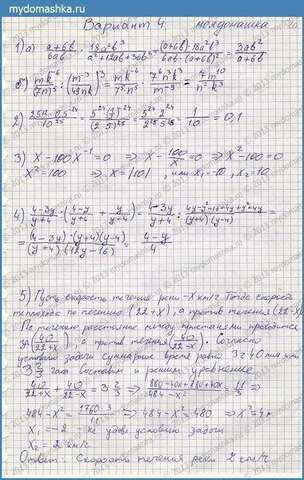 mydomashka.ru
Вариант 4 мояdomашка
1) а) (a+6b)/(6ab) · (18a²b³)/(a²+12ab+36b²) = ((a+6b)·18a²b³)/(6ab·(a+6b)²) = 3ab²/(a+6b)
2) = 1/10 = 0,1
3) X - 100X⁻¹ = 0 ⇒ X - 100/X = 0 ⇒ X² - 100 = 0
X² = 100 ⇒ X = |10|, или X₁ = -10, X₂ = 10
4) (4-3y)/(y+4) : ((y-4)/(y+4) + y/(y-4)) =
= ((4-3y)·(y+4)(y-4))/((y+4)·(12y-16)) =
5) Пусть скорость течения реки - X км/ч. Тогда скорость
теплохода по течению (22+X), а против течения (22-X)
По течению расстояние между пристанями пройдется
за (40/(22+X)), а против течения (40/(22-X)). Согласно
условию задачи суммарное время равно 3ч 40мин или
3 2/3 часа Составим и решим уравнение
40/(22+X) + 40/(22-X) = 3 2/3 ⇒ (880-40X+880+40X)/(484-X²) = 11/3 ⇒
484-X² = 1760·3/11 ⇒ 484-X² = 480 ⇒ X² = 4
X₁ = -2 - не удов. условию задачи
X₂ = 2 км/ч
Ответ: Скорость течения реки 2 км/ч
mydomashka.ru